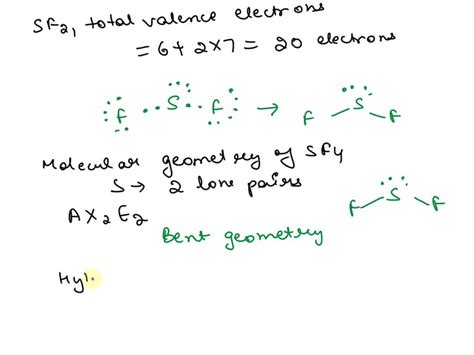 SF2, total valence electrons
= 6 + 2×7 = 20 electrons
F S F → F S F
Molecular geometry of SF4
S → 2 lone pairs
AX2E2
F S F
Bent geometry
Hyb